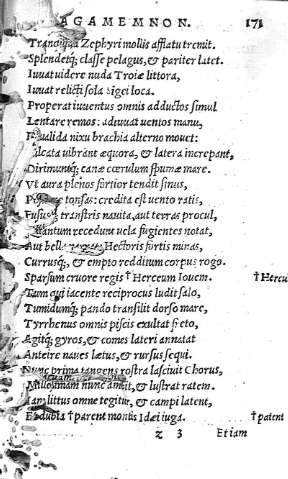 AGAMEMNON. 171
Tranquilla Zephyri mollis afflatu tremit.
Splendetq; classe pelagus, & pariter latet.
Iuuat uidere nuda Troiæ littora,
Iuuat relicti sola Sigei loca.
Properat iuuentus omnis adductos simul
Lentare remos: adiuuat uentos manu,
ualida nixu brachia alterno mouet:
ulcata uibrant æquora, & latera increpant,
Dirimuntq; canæ cœrulum spumæ mare.
Vt aura plenos fortior tendit sinus,
tonsas: credita est uento ratis,
Fusus transtris nauita, aut terras procul,
uantum recedunt uela fugientes notat,
Aut bell Hectoris fortis minas,
Currusq;, & empto redditum corpus rogo.
Sparsum cruore regis † Herceum Iouem. † Hercu
Tum qui iacente reciprocus ludit salo,
Tumidumq; pando transilit dorso mare,
Tyrrhenus omnis piscis exultat freto,
Agitq; gyros, & comes lateri annatat
Anteire naues lætus, & rursus sequi.
Nunc prima tangens rostra lasciuit Chorus,
Millesimam nunc ambit, & lustrat ratem.
Iam littus omne tegitur, & campi latent,
Et dubia † parent montis Idæi iuga. † patent
z 3 Etiam